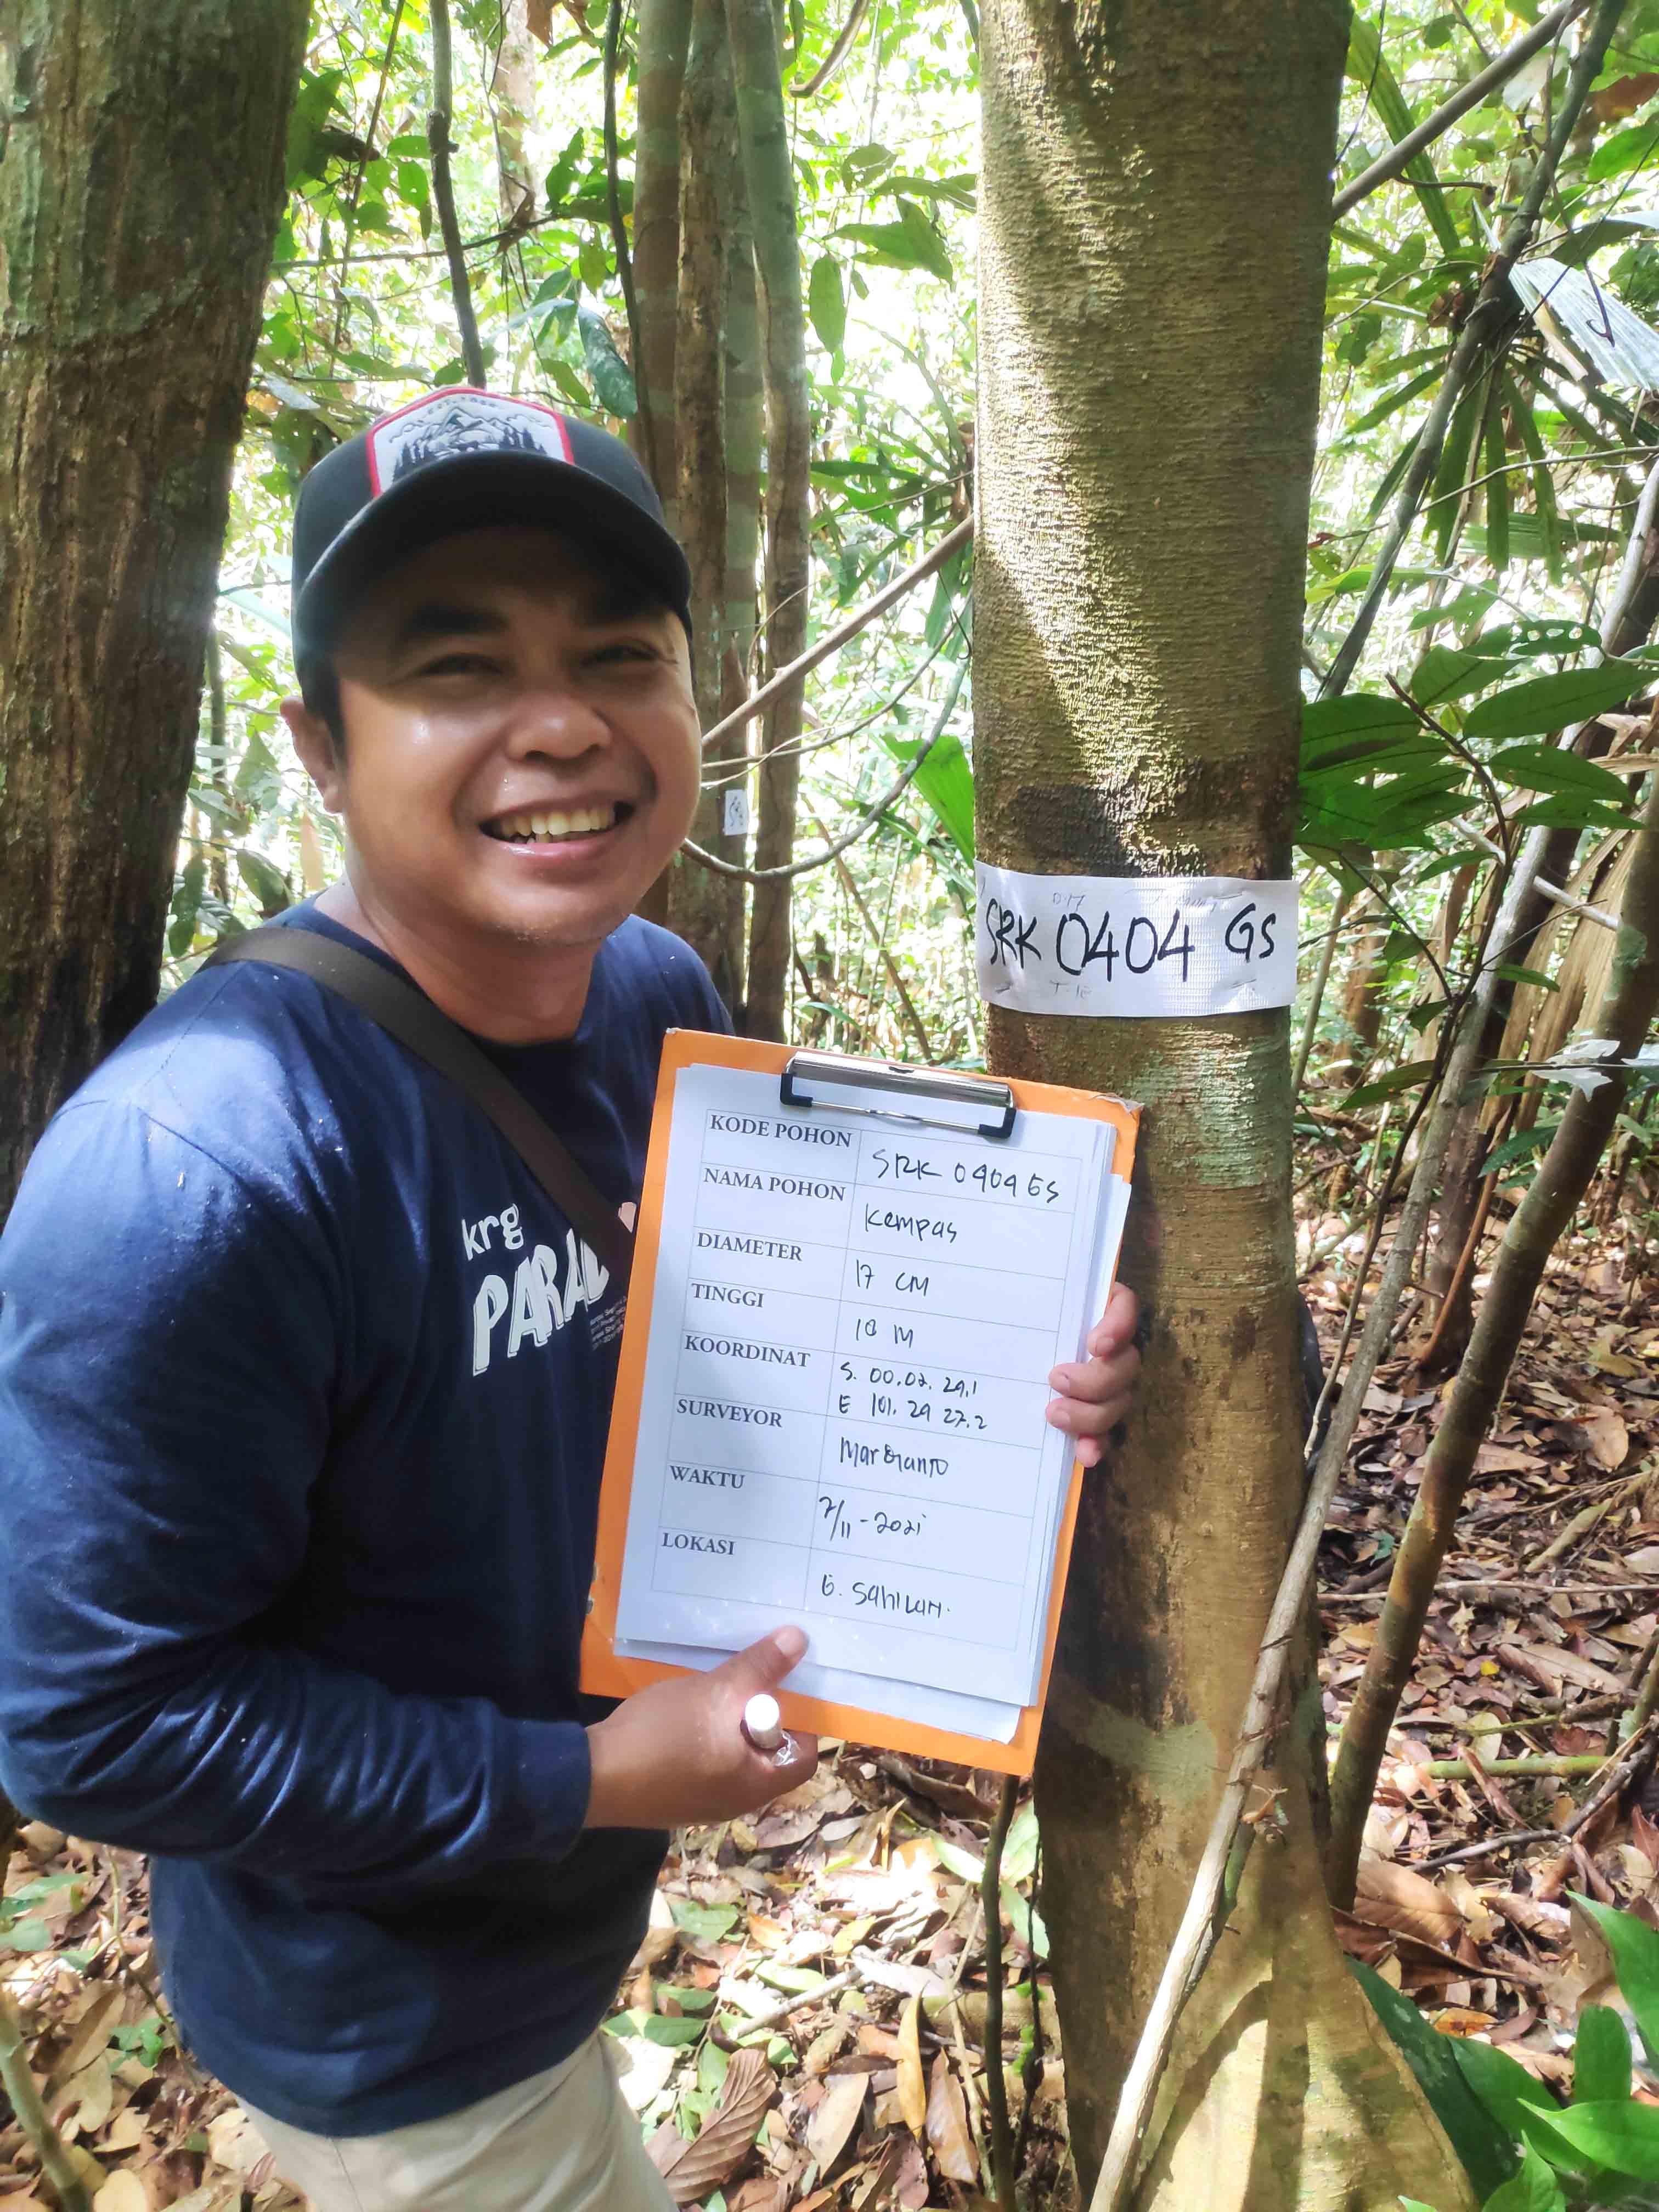 EST. 1989
SRK 0404 GS
D.17
T.18
krg
PARAD
KODE POHON SRK 0404 GS
NAMA POHON Kempas
DIAMETER 17 CM
TINGGI 18 M
KOORDINAT S. 00.02.29,1
E 101.29 27.2
SURVEYOR Mardianto
WAKTU 7/11-2021
LOKASI G. SAHILAN.